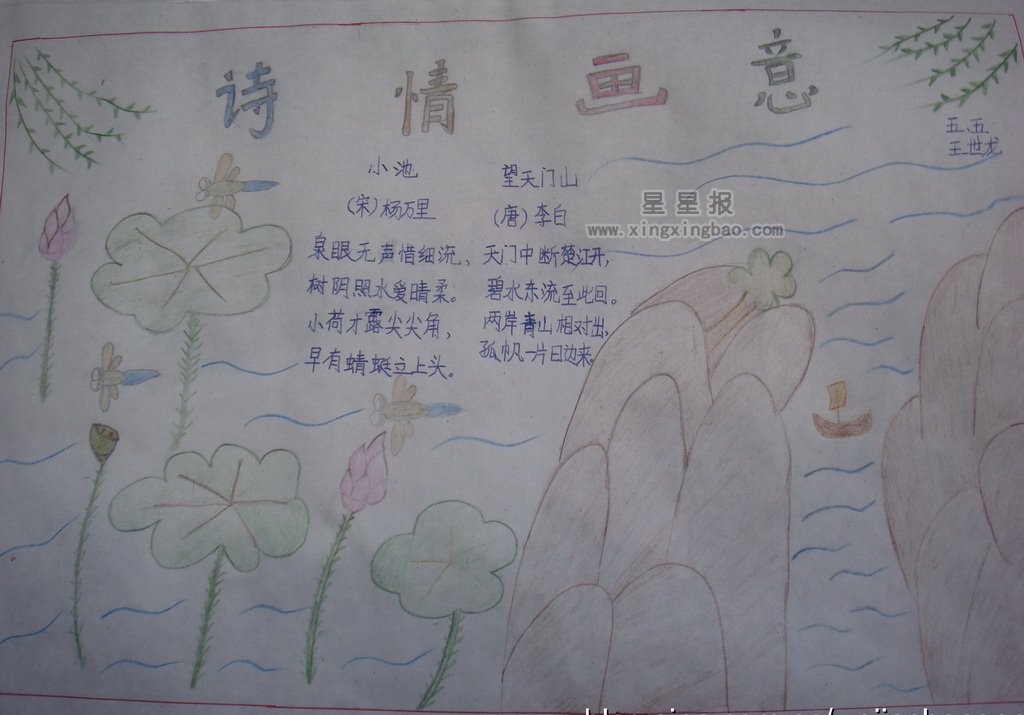 诗情画意
五.五
王世龙
小池
(宋)杨万里
泉眼无声惜细流、
树阴照水爱晴柔。
小荷才露尖尖角，
早有蜻蜓立上头。
望天门山
(唐)李白
天门中断楚江开，
碧水东流至此回。
两岸青山相对出，
孤帆一片日边来。
星星报
www.xingxingbao.com